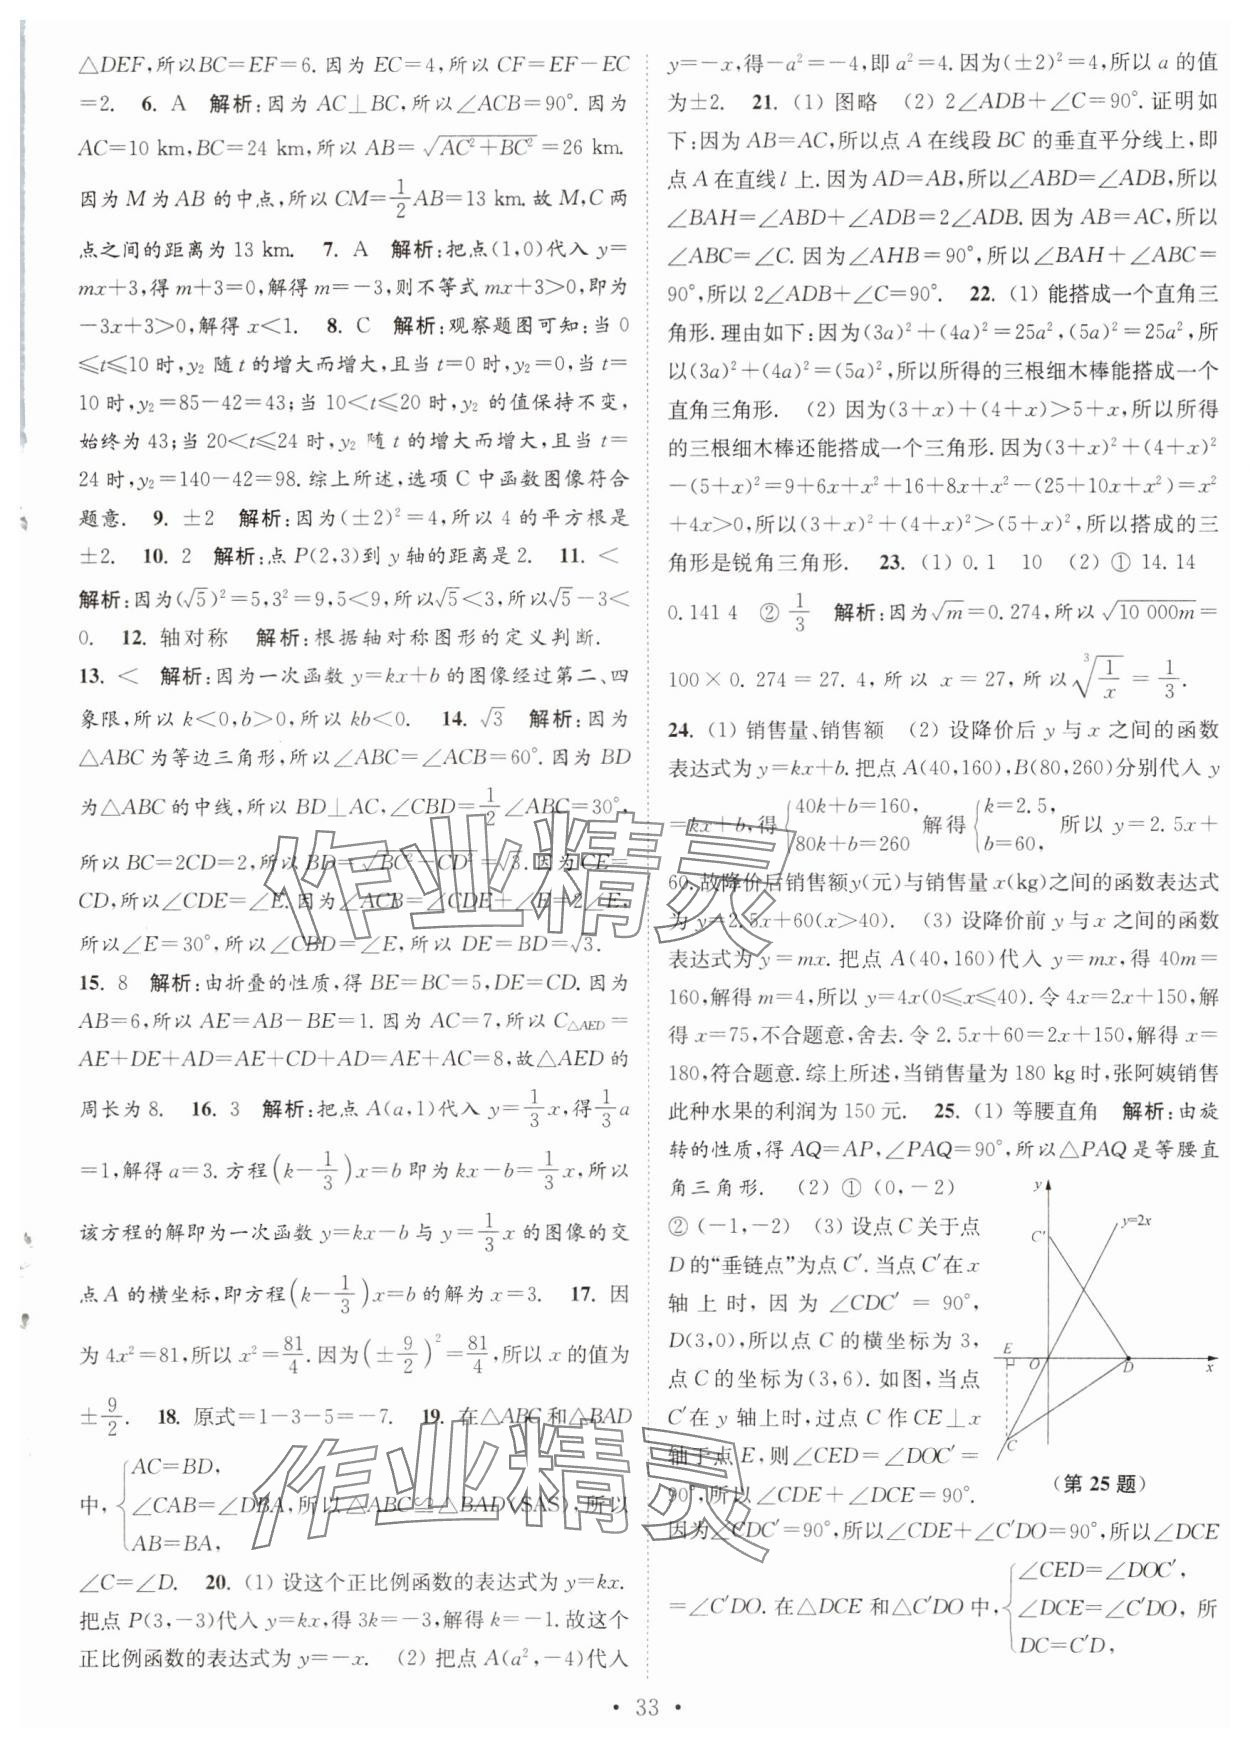 △DEF,所以BC=EF=6.因为 EC=4,所以 CF=EF-EC
=2. 6. A 解析:因为 AC⊥BC,所以∠ACB=90°.因为
AC=10 km,BC=24 km,所以 AB=√(AC²+BC²)=26 km.
因为 M 为 AB 的中点,所以 CM=1/2AB=13 km.故 M,C 两
点之间的距离为 13 km. 7. A 解析:把点(1,0)代入 y=
mx+3,得 m+3=0,解得 m=-3,则不等式 mx+3>0,即为
-3x+3>0,解得 x<1. 8. C 解析:观察题图可知:当 0
≤t≤10 时,y₂ 随 t 的增大而增大,且当 t=0 时,y₂=0,当 t=
10 时,y₂=85-42=43;当 10<t≤20 时,y₂ 的值保持不变,
始终为 43;当 20<t≤24 时,y₂ 随 t 的增大而增大,且当 t=
24 时,y₂=140-42=98.综上所述,选项 C 中函数图像符合
题意. 9. ±2 解析:因为(±2)²=4,所以 4 的平方根是
±2. 10. 2 解析:点 P(2,3)到 y 轴的距离是 2. 11. <
解析:因为(√5)²=5,3²=9,5<9,所以√5<3,所以√5-3<
0. 12. 轴对称 解析:根据轴对称图形的定义判断.
13. < 解析:因为一次函数 y=kx+b 的图像经过第二、四
象限,所以 k<0,b>0,所以 kb<0. 14. √3 解析:因为
△ABC 为等边三角形,所以∠ABC=∠ACB=60°.因为 BD
为△ABC 的中线,所以 BD⊥AC,∠CBD=1/2∠ABC=30°,
所以 BC=2CD=2,所以 BD=√(BC²-CD²)=√3.因为 CE=
CD,所以∠CDE=∠E.因为∠ACB=∠CDE+∠E=2∠E,
所以∠E=30°,所以∠CBD=∠E,所以 DE=BD=√3.
15. 8 解析:由折叠的性质,得 BE=BC=5,DE=CD.因为
AB=6,所以 AE=AB-BE=1.因为 AC=7,所以 C△AED=
AE+DE+AD=AE+CD+AD=AE+AC=8,故△AED 的
周长为 8. 16. 3 解析:把点 A(a,1)代入 y=1/3x,得1/3a
=1,解得 a=3.方程(k-1/3)x=b 即为 kx-b=1/3x,所以
该方程的解即为一次函数 y=kx-b 与 y=1/3x 的图像的交
点 A 的横坐标,即方程(k-1/3)x=b 的解为 x=3. 17. 因
为 4x²=81,所以 x²=81/4.因为(±9/2)²=81/4,所以 x 的值为
±9/2. 18. 原式=1-3-5=-7. 19. 在△ABC 和△BAD
中,{AC=BD,
∠CAB=∠DBA,所以△ABC≌△BAD(SAS),所以
AB=BA,
∠C=∠D. 20. (1) 设这个正比例函数的表达式为 y=kx.
把点 P(3,-3)代入 y=kx,得 3k=-3,解得 k=-1.故这个
正比例函数的表达式为 y=-x. (2) 把点 A(a²,-4)代入
y=-x,得-a²=-4,即 a²=4.因为(±2)²=4,所以 a 的值
为±2. 21. (1) 图略 (2) 2∠ADB+∠C=90°.证明如
下:因为 AB=AC,所以点 A 在线段 BC 的垂直平分线上,即
点 A 在直线 l 上.因为 AD=AB,所以∠ABD=∠ADB,所以
∠BAH=∠ABD+∠ADB=2∠ADB.因为 AB=AC,所以
∠ABC=∠C.因为∠AHB=90°,所以∠BAH+∠ABC=
90°,所以 2∠ADB+∠C=90°. 22. (1) 能搭成一个直角三
角形.理由如下:因为(3a)²+(4a)²=25a²,(5a)²=25a²,所
以(3a)²+(4a)²=(5a)²,所以所得的三根细木棒能搭成一个
直角三角形. (2) 因为(3+x)+(4+x)>5+x,所以所得
的三根细木棒还能搭成一个三角形.因为(3+x)²+(4+x)²
-(5+x)²=9+6x+x²+16+8x+x²-(25+10x+x²)=x²
+4x>0,所以(3+x)²+(4+x)²>(5+x)²,所以搭成的三
角形是锐角三角形. 23. (1) 0.1 10 (2) ① 14.14
0.141 4 ② 1/3 解析:因为√m=0.274,所以√(10 000m)=
100×0.274=27.4,所以 x=27,所以 ³√(1/x)=1/3.
24. (1) 销售量、销售额 (2) 设降价后 y 与 x 之间的函数
表达式为 y=kx+b.把点 A(40,160),B(80,260)分别代入 y
=kx+b,得{40k+b=160, 80k+b=260 解得{k=2.5, b=60, 所以 y=2.5x+
60.故降价后销售额 y(元)与销售量 x(kg)之间的函数表达式
为 y=2.5x+60(x>40). (3) 设降价前 y 与 x 之间的函数
表达式为 y=mx.把点 A(40,160)代入 y=mx,得 40m=
160,解得 m=4,所以 y=4x(0≤x≤40).令 4x=2x+150,解
得 x=75,不合题意,舍去.令 2.5x+60=2x+150,解得 x=
180,符合题意.综上所述,当销售量为 180 kg 时,张阿姨销售
此种水果的利润为 150 元. 25. (1) 等腰直角 解析:由旋
转的性质,得 AQ=AP,∠PAQ=90°,所以△PAQ 是等腰直
角三角形. (2) ① (0,-2)
② (-1,-2) (3) 设点 C 关于点
D 的“垂链点”为点 C′.当点 C′在 x
轴上时,因为∠CDC′=90°,
D(3,0),所以点 C 的横坐标为 3,
点 C 的坐标为(3,6).如图,当点
C′在 y 轴上时,过点 C 作 CE⊥x
轴于点 E,则∠CED=∠DOC′=
90°,所以∠CDE+∠DCE=90°.
因为∠CDC′=90°,所以∠CDE+∠C′DO=90°,所以∠DCE
=∠C′DO.在△DCE 和△C′DO 中,{∠CED=∠DOC′,
∠DCE=∠C′DO, 所
DC=C′D,
y
y=2x
C′
E
O
D
x
C
(第 25 题)
• 33 •
作业精灵
作业精灵